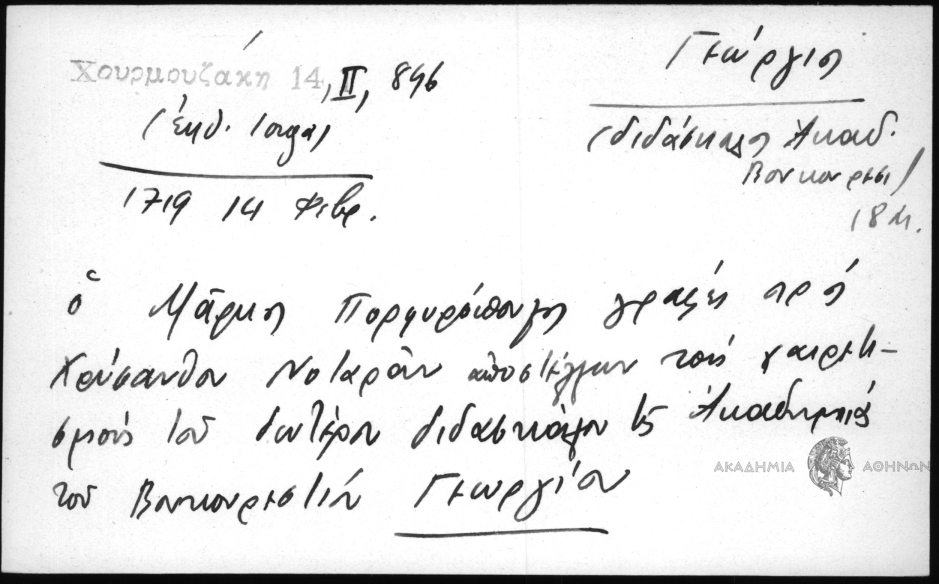 Χουρμουζάκη 14, II, 896
(ἐκδ.
1719 14 Φεβρ.
Γεώργιος
(διδάσκαλος Ἀκαδ.
Βουκουρεστ)
18 αἰ.
ὁ Μᾶρκος Πορφυρόπουλος γράφει πρός
Χρύσανθον Νοταρᾶν ἀποστέλλων τούς χαιρετι-
σμούς τοῦ δευτέρου διδασκάλου τῆς Ἀκαδημίας
τοῦ Βουκουρεστίου Γεωργίου
ΑΚΑΔΗΜΙΑ ΑΘΗΝΩΝ